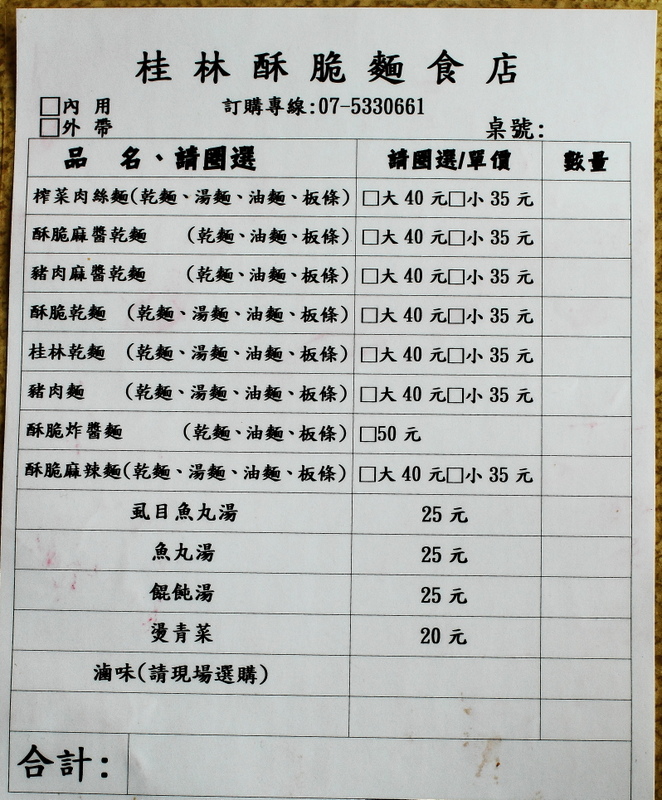 桂林酥脆麵食店
□內 用 訂購專線:07-5330661
□外 帶 桌號:
品 名、請圈選 請圈選/單價 數量
榨菜肉絲麵(乾麵、湯麵、油麵、板條) □大 40 元□小 35 元
酥脆麻醬乾麵 (乾麵、油麵、板條) □大 40 元□小 35 元
豬肉麻醬乾麵 (乾麵、油麵、板條) □大 40 元□小 35 元
酥脆乾麵 (乾麵、湯麵、油麵、板條) □大 40 元□小 35 元
桂林乾麵 (乾麵、湯麵、油麵、板條) □大 40 元□小 35 元
豬肉麵 (乾麵、湯麵、油麵、板條) □大 40 元□小 35 元
酥脆炸醬麵 (乾麵、油麵、板條) □50 元
酥脆麻辣麵(乾麵、湯麵、油麵、板條) □大 40 元□小 35 元
虱目魚丸湯 25 元
魚丸湯 25 元
餛飩湯 25 元
燙青菜 20 元
滷味(請現場選購)
合計: